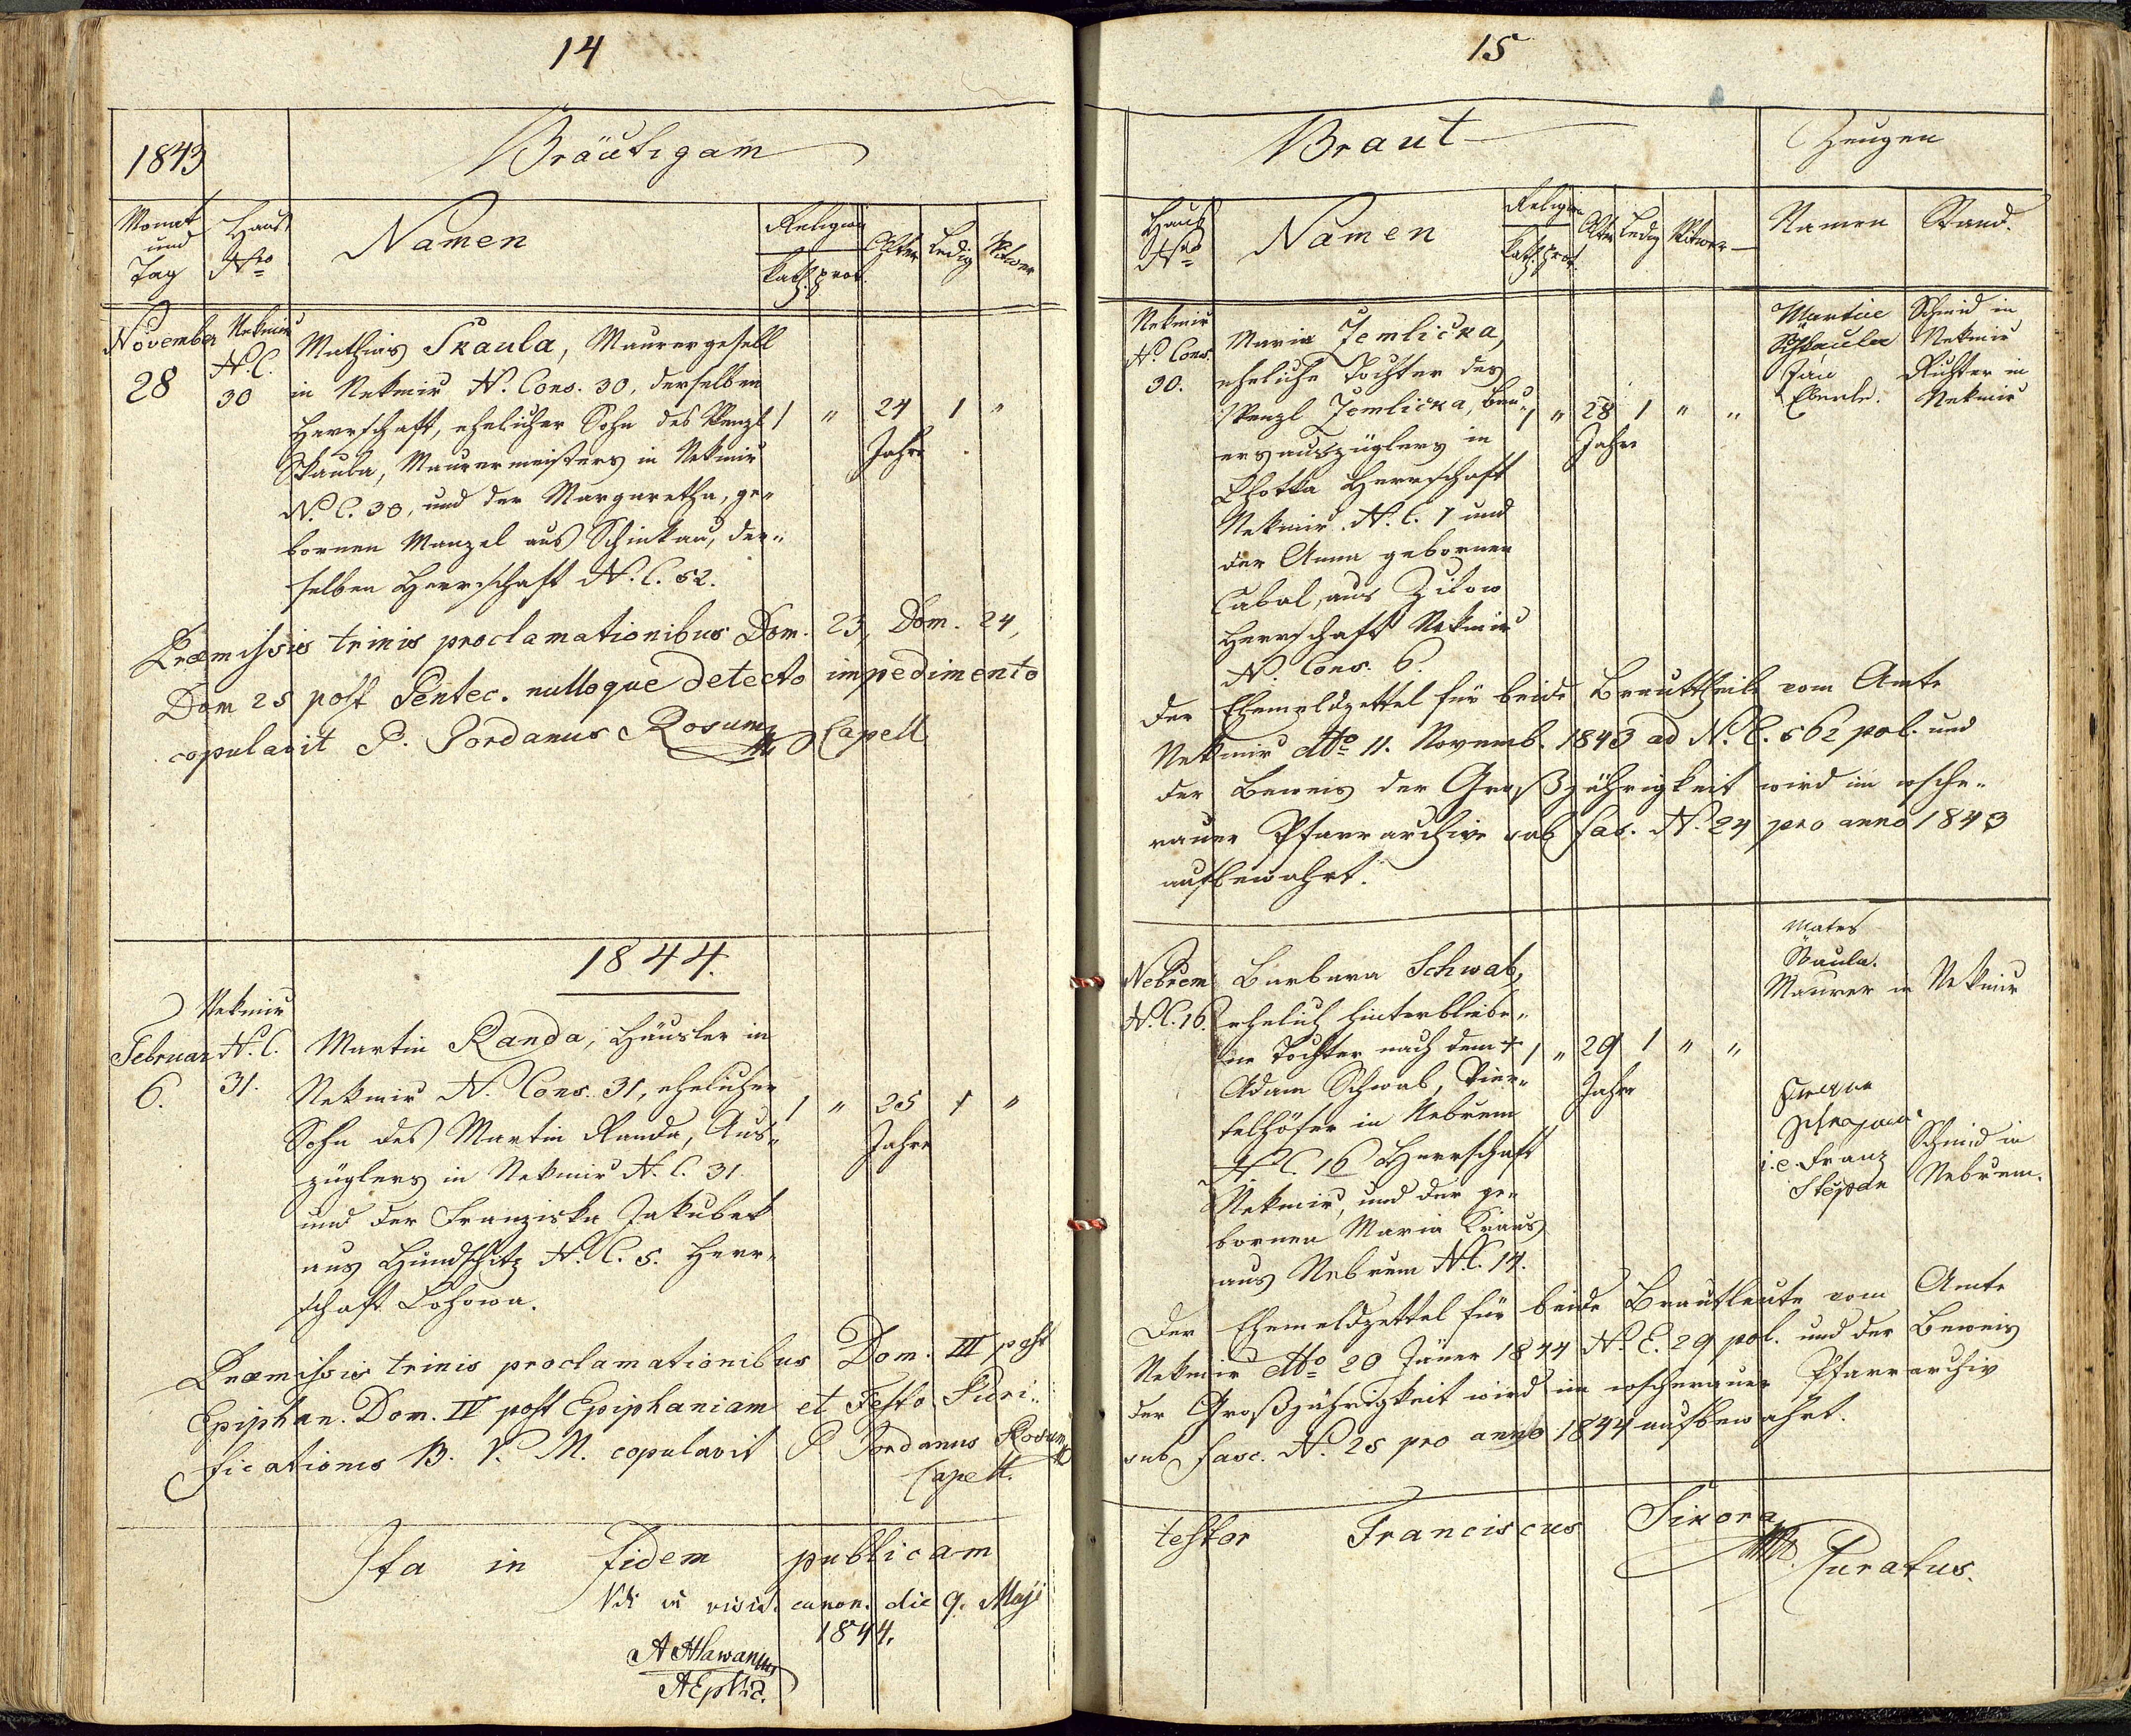 14
1843
Bräutigam
Monat
und
Tag
Haus
Nro
Namen
Religion
kath. prot.
Alter
Ledig
Witwer
November
28
Nekmiř
N. C.
30
Mathias Skaula, Maurergesell
in Nekmiř N. Cons. 30, derselben
Herrschaft, ehelicher Sohn des Wenzl
Skaula, Maurermeisters in Nekmiř
N. C. 30, und der Margaretha, ge„
bornen Manzel aus Schinkau, der„
selben Herrschaft N. C. 52.
1 „ 24 1 „
Jahre
Præmissis trinis proclamationibus Dom. 23, Dom. 24,
Dom 25 post Pentec. nulloque detecto impedimento
copulavit P. Jordanus Rosum Capell.
1844.
Februar
6.
Nekmiř
N. C.
31.
Martin Randa, Häusler in
Nekmiř N. Cons. 31, ehelicher
Sohn des Martin Randa, Aus„
züglers in Nekmiř N. C. 31
und der Franziska Jakubek
aus Hundschitz N. C. 5. Herr„
schaft Lohowa.
1 „ 25 1 „
Jahre
Præmissis trinis proclamationibus Dom. III post
Epiphan. Dom. IV post Epiphaniam et Festo Puri„
ficationis B. V. M. copulavit P. Jordanus Rosum
Capell.
Ita in fidem publicam
Vidi in visit. canon. die 9. Maji
1844.
15
Braut
Zeugen
Haus
Nro
Namen
Religion
kath. prot.
Alter
Ledig
Witwe
Namen
Stand.
Nekmiř
N. Cons.
30.
Maria Zemlicka,
eheliche Tochter des
Wenzl Zemlicka, Bau„
ersauszüglers in
Lhotka Herrschaft
Nekmiř N. C. 7 und
der Anna gebornen
Cabal, aus Zilow
Herrschaft Nekmiř
N. Cons. 6.
1 „ 28 1 „ „
Jahre
Martin
Schkaula
Jan
Eberle.
Schmid in
Nekmiř
Richter in
Nekmiř
Der Ehemeldzettel für beide Brauttheile vom Amte
Nekmiř dto 11. Novemb. 1843 ad N. E. 562 pol. und
der Beweis der Großjährigkeit wird im wsche„
rauer Pfarrarchive sub fas. N. 24 pro anno 1843
aufbewahrt.
Nebřem
N. C. 16.
Barbara Schwab,
ehelich hinterbliebe„
ne Tochter nach dem †
Adam Schwab, Vier„
telhöfer in Nebřem
N C. 16 Herrschaft
Nekmiř, und der ge„
bornen Maria Kraus
aus Nebřem N. C. 14.
1 „ 29 1 „ „
Jahre
Mates
Skaula.
Maurer in Nekmiř
i. e. Franz
Štěpan
Schmid in
Nebřem.
Der Ehemeldzettel für beide Brautleute vom Amte
Nekmiř dto 20 Jäner 1844 N. E. 29 pol. und der Beweis
der Großjährigkeit wird im wscherauer Pfarrarchiv
sub fasc. N. 25 pro anno 1844 aufbewahrt.
testor Franciscus Sikora
Curatus.